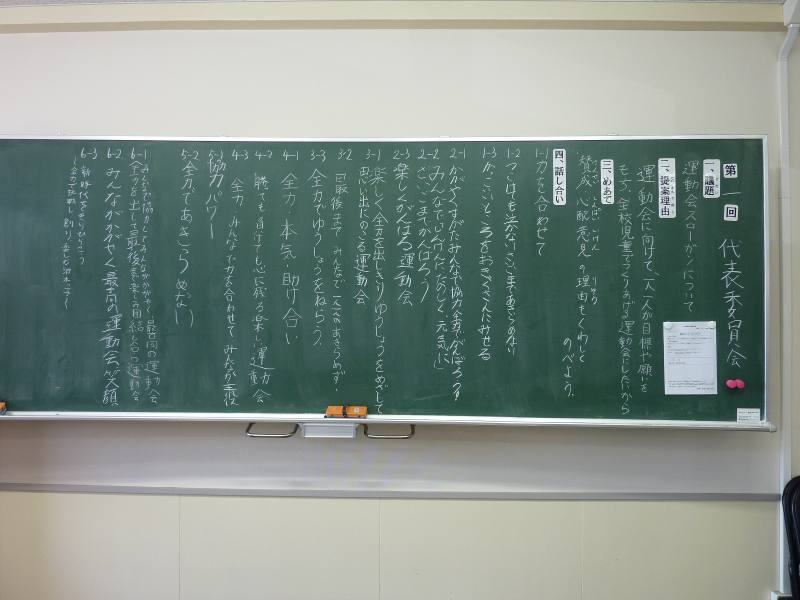 第一回 代表委員会
一、議題
運動会スローガンについて
二、提案理由
運動会に向けて、一人一人が目標や願いを
もち、全校児童でつくりあげる運動会にしたいから
三、めあて
賛成、心配意見の理由もくわしく
のべよう。
四、話し合い
1-1 力を合わせて
1-2 つまけても泣かない さいごまであきらめない
1-3 かっこいいところをおきゃくさんにみせる
2-1 かがやくすがた みんなで協力 全力でがんばろう
2-2 みんなで いちだんに たのしく 元気に
さいごまでがんばろう
2-3 楽しくがんばる運動会
3-1 楽しく全力を出しきり ゆうしょうをめざして
思い出にのこる運動会
3-2 最後まで みんなで 一人一人があきらめず!
3-3 全力でゆうしょうをねらう
4-1 全力・本気・助け合い
4-2 勝っても負けても心に残る楽しい運動会
4-3 全力 みんなで力を合わせて みんなが主役
5-1 協力パワー
5-2 全力であきらめない
6-1 みんなで協力してみんながかがやく 最高の運動会
全力を出して最後まで楽しみ団結を
6-2 みんながかがやく 最高の運動会 笑顔
6-3 新時代をきりひらこう